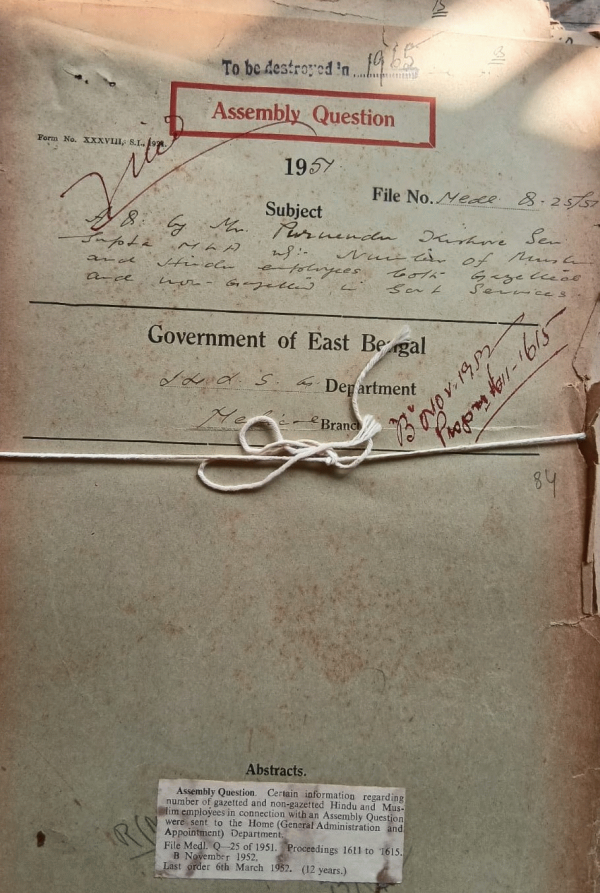 To be destroyed in 1965
Assembly Question
Form No. XXXVIII, S.I.,
1951
File No. Medl Q-25/51
Subject
A Q. by Mr. Purnendu Kishore Sen
Gupta MLA Number of Muslim
and Hindu employees both gazetted
and non-gazetted in Govt Services.
Government of East Bengal
Department
Branch
B Nov. 1952
Progs 1611-1615
84
Abstracts.
Assembly Question. Certain information regarding
number of gazetted and non-gazetted Hindu and Mus-
lim employees in connection with an Assembly Question
were sent to the Home (General Administration and
Appointment) Department.
File Medl. Q—25 of 1951. Proceedings 1611 to 1615.
B November 1952.
Last order 6th March 1952. (12 years.)